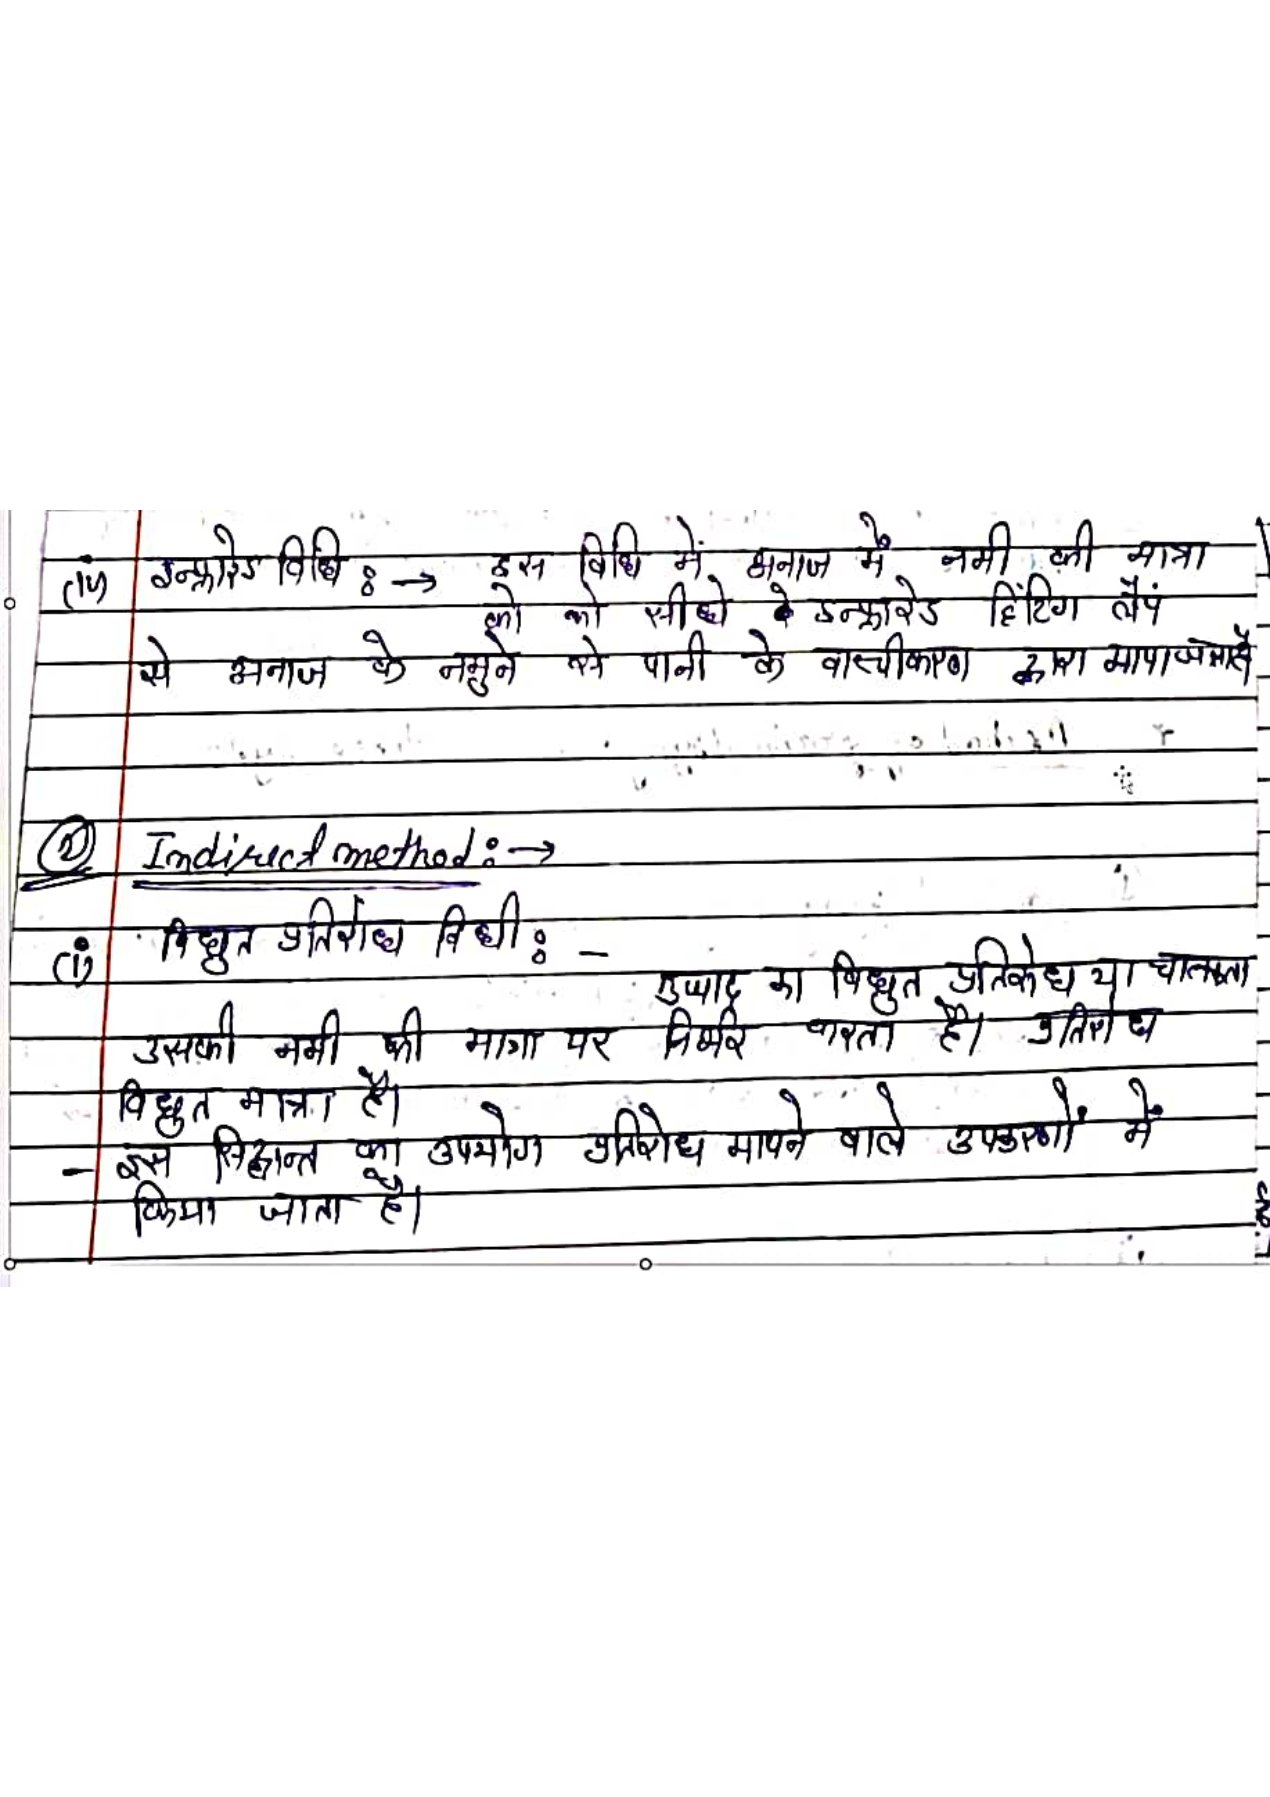 (iv) इन्फ्रारेड विधि :→ इस विधि में अनाज में नमी की मात्रा
को को सीधे इन्फ्रारेड हिटिंग लैपं
से अनाज के नमुने से पानी के वास्पीकरण द्वारा मापा जाता है
② Indirect method :→
(i) विद्युत प्रतिरोध विधी : –
उत्पाद का विद्युत प्रतिरोध या चालकता
उसकी नमी की मात्रा पर निर्भर करता है। प्रतिरोध
विद्युत मात्रा है।
– इस सिद्धान्त का उपयोग प्रतिरोध मापने वाले उपकरणों में
किया जाता है।